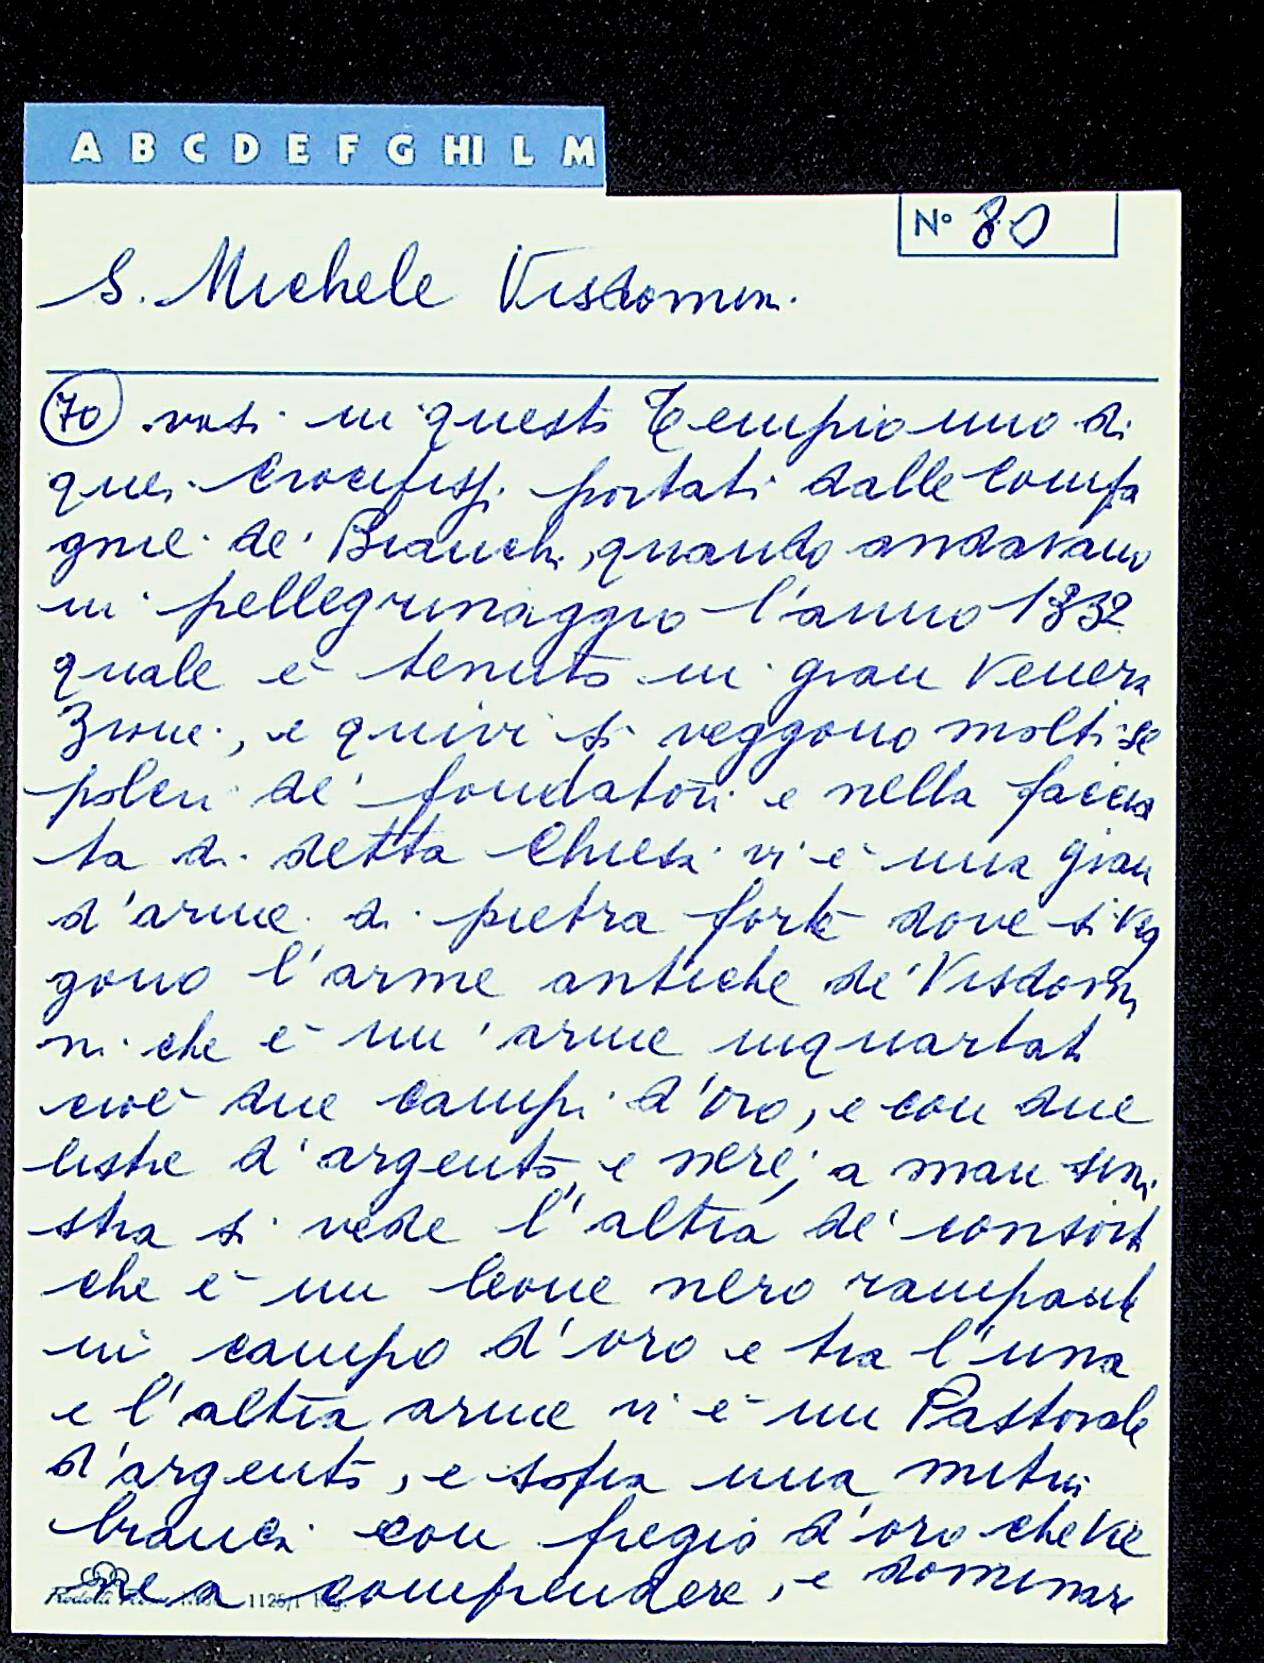 A B C D E F G HI L M
N° 80
S. Michele Visdomini
70 vasi in questo Tempio uno di
quei Crocefissi portati dalle Compa
gnie de' Bianchi, quando andavano
in pellegrinaggio l'anno 1332
quale è tenuto in gran venera
zione, e quivi si veggono molti se
polcri de' fondatori e nella faccia
ta di detta Chiesa vi è una gran
d'arme di pietra forte dove si veg
gono l'arme antiche de' Visdomi
ni che è un'arme inquartata
cioè due campi d'oro, e con due
liste d'argento, e nere; a man sini
stra si vede l'altra de' consorti
che è un leone nero rampante
in campo d'oro e tra l'una
e l'altra arme vi è un Pastorale
d'argento, e sopra una mitria
bianca con fregio d'oro che vie
ne a comprendere, e dominare